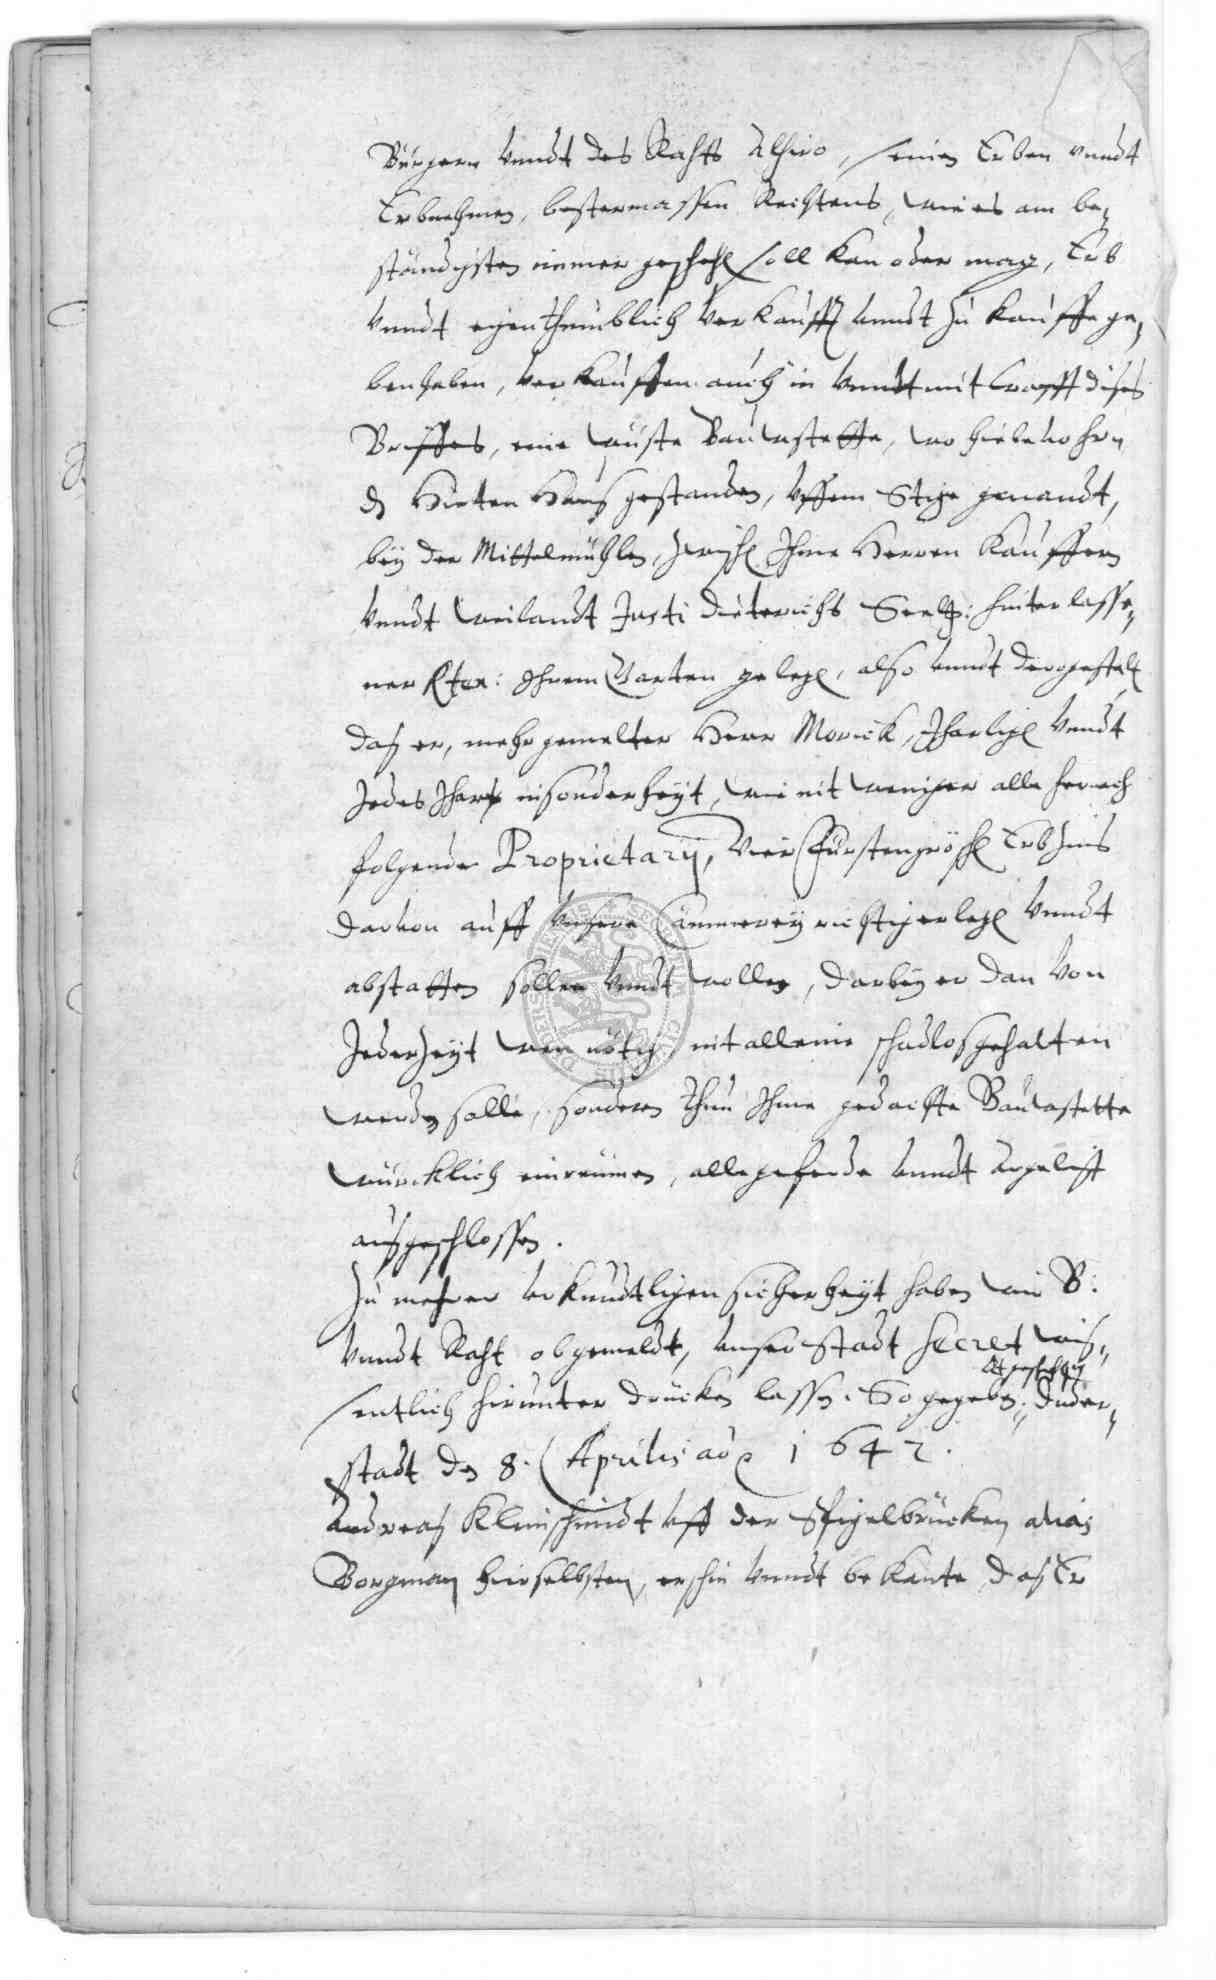 Bürgern vnndt des Rahtts Alhiro, seinen Erben vnndt
Erbnehmen, bestermassen Rechtens, wie es am be,
ständigsten immer geschehen soll kan oder mag, Erb
vnndt eigenthumblich verkaufft vnndt zu kauffe ge,
ben haben, verkauffen auch in vnndt mit krafft dises
Briffes, eine wüste Bauwstette, wo hiebevohrn
d Hirten Haus gestanden, vffem Stige genandt,
bey der Mittelmühlen, zwischen Ihme Herren Kauffern
vnndt weilandt Justi Dieterichs Seelg: hinterlasse,,
ner Garten gelegen, also vnndt dergestalt
das er, mehrgemelter Herr Morick, Jharligen vnndt
Jedes Jhars insonderheyt, wie nit weniger alle hernach
folgende Proprietarij, Vier Fürstengröschen Erbzins
darvon auff vnsere Cämmerey richtig erlegen vnndt
abstatten sollen vnndt wollen, darbey er dan von
Jederzeyt wen nötig, nit alleine schadlos gehalten
werden solle, sonderen thun Ihme gedachte Bauwstette
würcklich einreümen, alle geferde vnndt argelist
ausgeschlossen.
Zu mehrer vrkundtligen sicherheyt haben wir B:
vnndt Raht obgemeldt, vnser Stadt Secret wis,,
sentlich hirunter drücken lassen. So gegeben,, Duder,,
stadt den 8. Aprilis ao 1642.
Andreas Kleinschmidt vff der Spigelbrücken alias
Borgman hierselbsten, erschin vnndt bekante, das Er